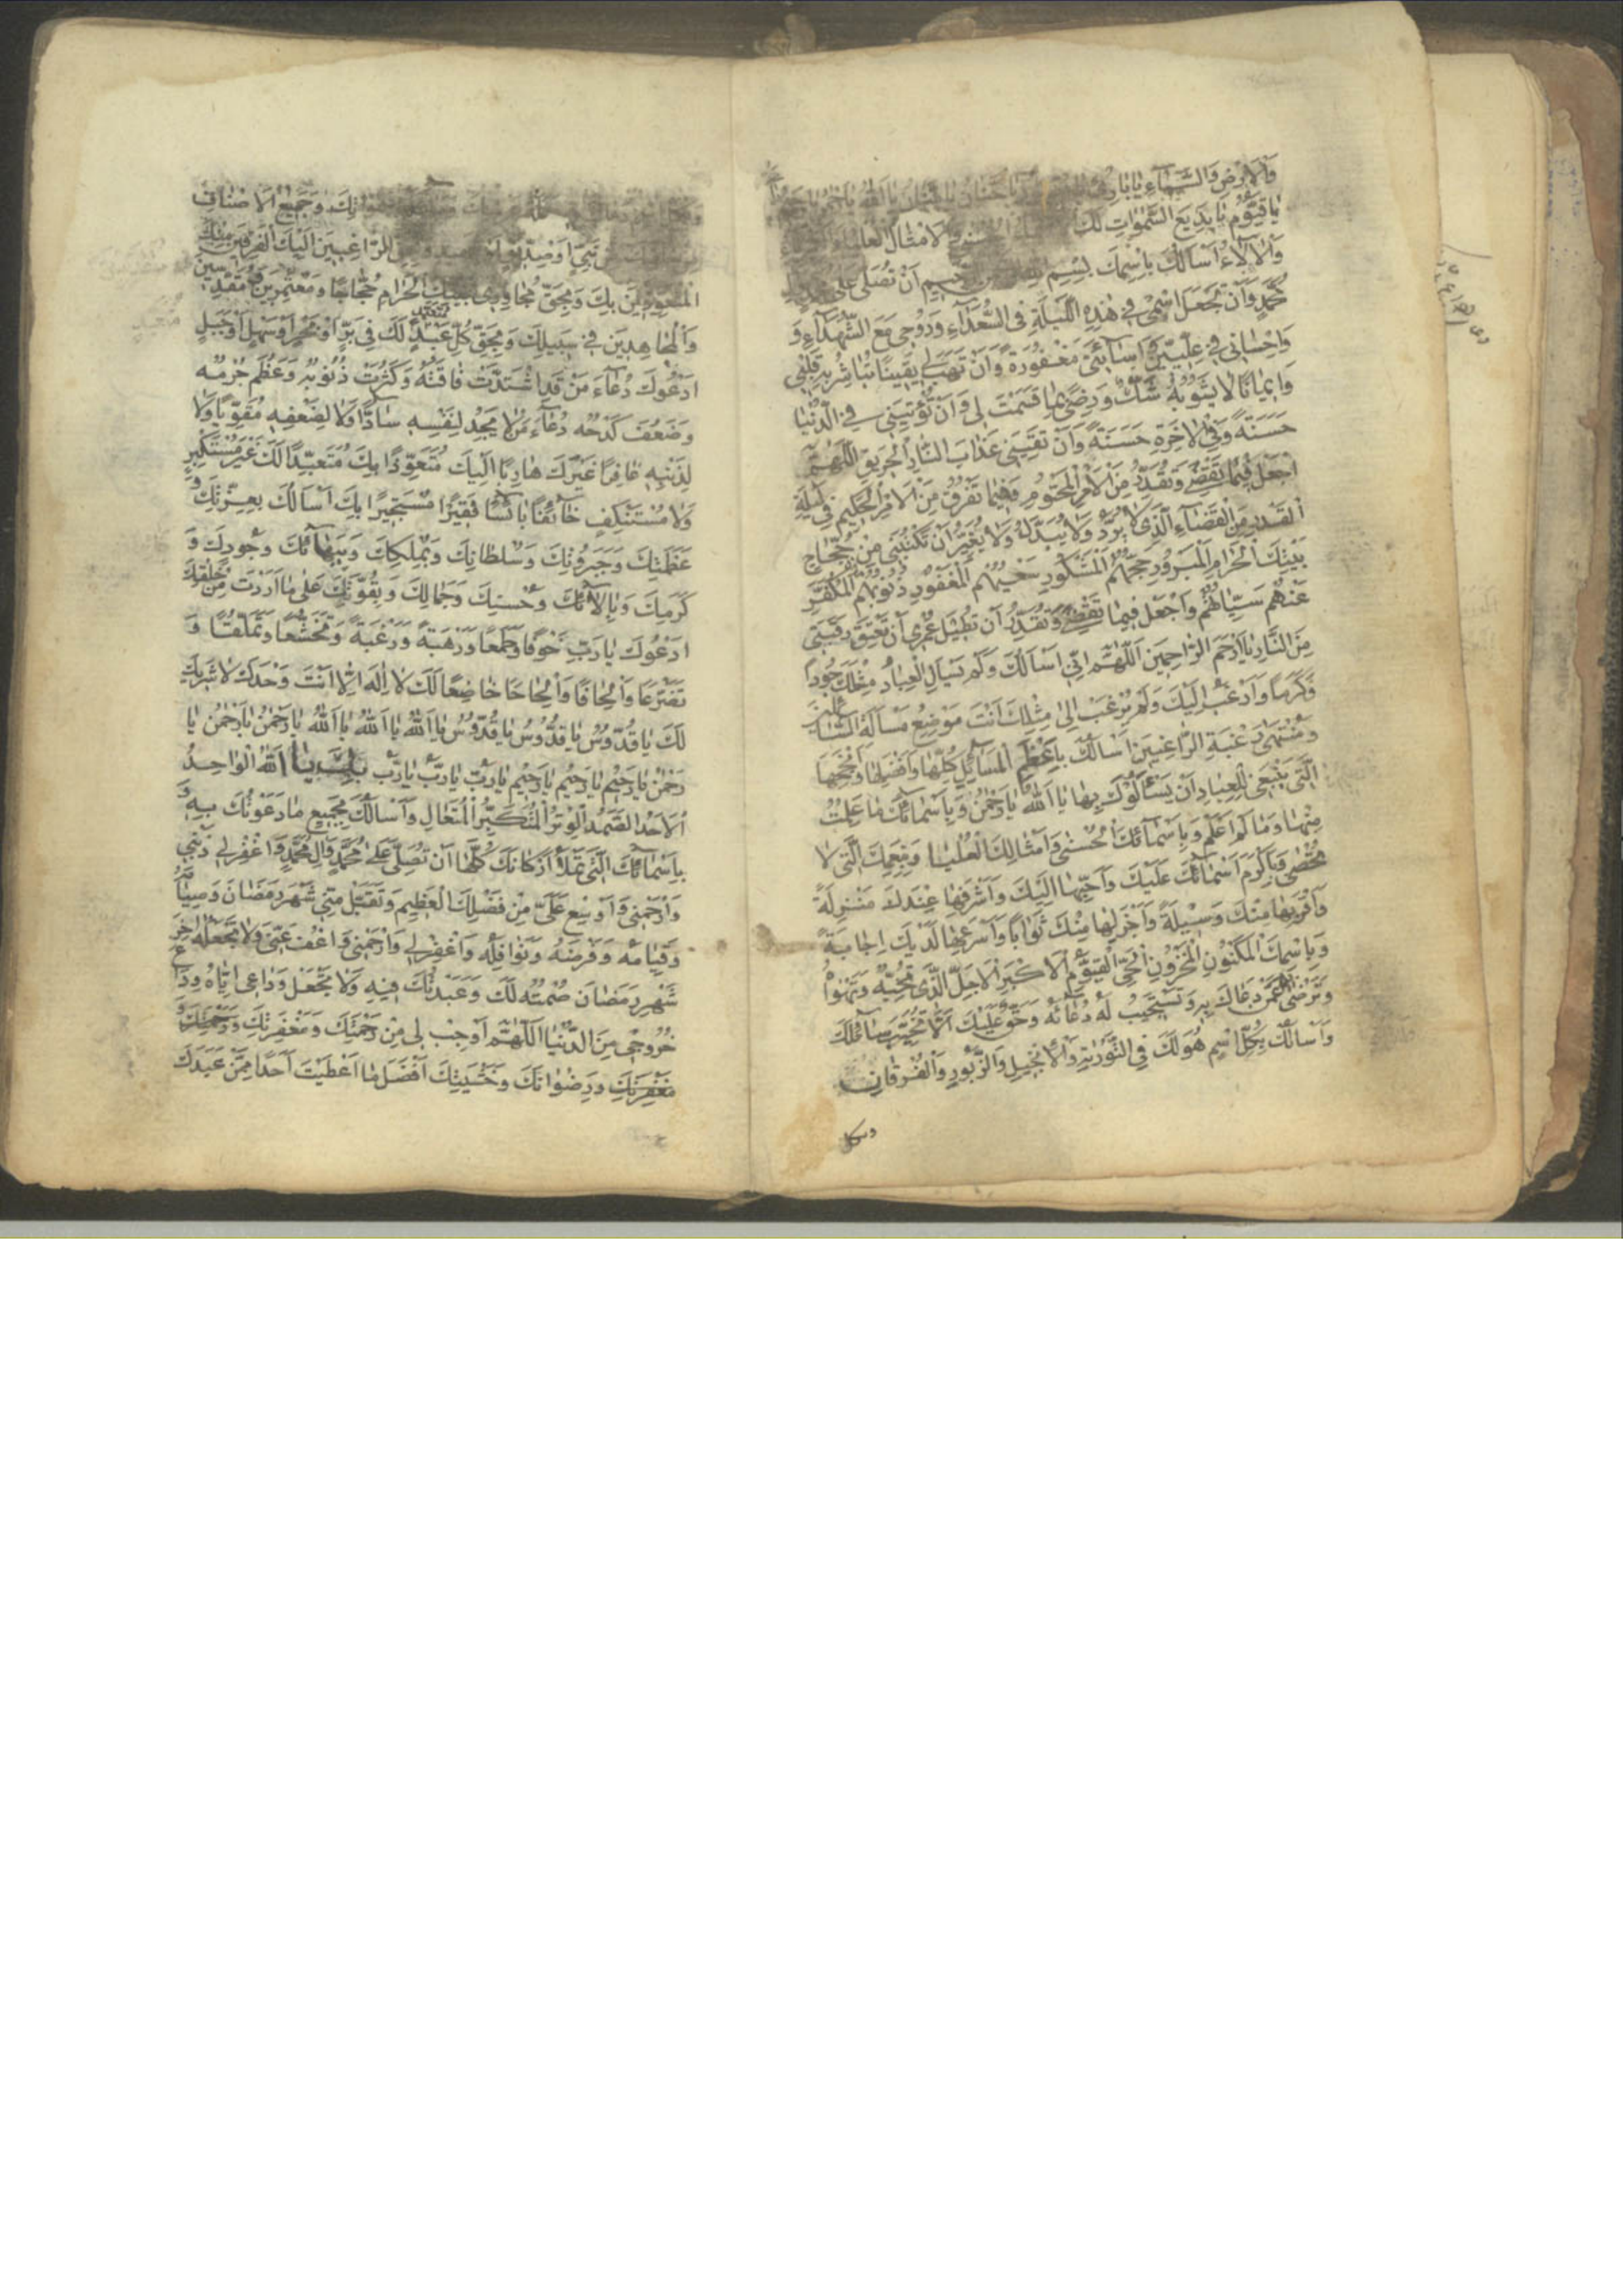 وَالْاَرْضِ وَالسَّمٰاءِ يٰا بٰارِئُ يٰا حَنّٰانُ يٰا مَنّٰانُ يٰا اَللهُ يٰا رَحْمٰنُ
يٰا قَيُّومُ يٰا بَدِيعَ السَّمٰوٰاتِ لَكَ الْاَمْثٰالُ الْعُلْيٰا
وَالْاٰلٰاءُ اَسْاَلُكَ بِاسْمِكَ بِسْمِ اَنْ تُصَلِّيَ عَلٰى
مُحَمَّدٍ وَاَنْ تَجْعَلَ اسْمِي فِي هٰذِهِ اللَّيْلَةِ فِي السُّعَدٰاءِ وَرُوحِي مَعَ الشُّهَدٰاءِ وَ
وَاِحْسٰانِي فِي عِلِّيِّينَ وَاِسٰاءَتِي مَغْفُورَةً وَاَنْ تَهَبَ لِي يَقِينًا تُبٰاشِرُ بِهِ قَلْبِي
وَاِيمٰانًا لٰا يَشُوبُهُ شَكٌّ وَرِضًى بِمٰا قَسَمْتَ لِي وَاَنْ تُؤْتِيَنِي فِي الدُّنْيٰا
حَسَنَةً وَفِي الْاٰخِرَةِ حَسَنَةً وَاَنْ تَقِيَنِي عَذٰابَ النّٰارِ الْحَرِيقِ اَللّٰهُمَّ
اجْعَلْ فِيمٰا تَقْضِي وَتُقَدِّرُ مِنَ الْاَمْرِ الْمَحْتُومِ وَفِيمٰا تَفْرُقُ مِنَ الْاَمْرِ الْحَكِيمِ فِي لَيْلَةِ
الْقَدْرِ مِنَ الْقَضٰاءِ الَّذِي لٰا يُرَدُّ وَلٰا يُبَدَّلُ وَلٰا يُغَيَّرُ اَنْ تَكْتُبَنِي مِنْ حُجّٰاجِ
بَيْتِكَ الْحَرٰامِ الْمَبْرُورِ حَجُّهُمُ الْمَشْكُورِ سَعْيُهُمُ الْمَغْفُورِ ذُنُوبُهُمُ الْمُكَفَّرِ
عَنْهُمْ سَيِّئٰاتُهُمْ وَاجْعَلْ فِيمٰا تَقْضِي وَتُقَدِّرُ اَنْ تُطِيلَ عُمْرِي اَنْ تُعْتِقَ رَقَبَتِي
مِنَ النّٰارِ يٰا اَرْحَمَ الرّٰاحِمِينَ اَللّٰهُمَّ اِنِّي اَسْاَلُكَ وَلَمْ يَسْاَلِ الْعِبٰادُ مِثْلَكَ جُودًا
وَكَرَمًا وَاَرْغَبُ اِلَيْكَ وَلَمْ يُرْغَبْ اِلٰى مِثْلِكَ اَنْتَ مَوْضِعُ مَسْاَلَةِ السّٰائِلِينَ
وَمُنْتَهٰى رَغْبَةِ الرّٰاغِبِينَ اَسْاَلُكَ بِاَعْظَمِ الْمَسٰائِلِ كُلِّهٰا وَاَفْضَلِهٰا وَاَنْجَحِهٰا
الَّتِي يَنْبَغِي لِلْعِبٰادِ اَنْ يَسْئَلُوكَ بِهٰا يٰا اَللهُ يٰا رَحْمٰنُ وَبِاَسْمٰائِكَ مٰا عَلِمْتُ
مِنْهٰا وَمٰا لَمْ اَعْلَمْ وَبِاَسْمٰائِكَ الْحُسْنٰى وَاَمْثٰالِكَ الْعُلْيٰا وَنِعَمِكَ الَّتِي لٰا
تُحْصٰى وَبِاَكْرَمِ اَسْمٰائِكَ عَلَيْكَ وَاَحَبِّهٰا اِلَيْكَ وَاَشْرَفِهٰا عِنْدَكَ مَنْزِلَةً
وَاَقْرَبِهٰا مِنْكَ وَسِيلَةً وَاَجْزَلِهٰا مِنْكَ ثَوٰابًا وَاَسْرَعِهٰا لَدَيْكَ اِجٰابَةً
وَبِاسْمِكَ الْمَكْنُونِ الْمَخْزُونِ الْحَيِّ الْقَيُّومِ الْاَكْبَرِ الْاَجَلِّ الَّذِي تُحِبُّهُ وَتَهْوٰاهُ
وَتَرْضٰى عَمَّنْ دَعٰاكَ بِهِ وَتَسْتَجِيبُ لَهُ دُعٰائَهُ وَحَقٌّ عَلَيْكَ اَلّٰا تُخَيِّبَ سٰائِلَكَ
وَاَسْاَلُكَ بِكُلِّ اسْمٍ هُوَ لَكَ فِي التَّوْرٰيةِ وَالْاِنْجِيلِ وَالزَّبُورِ وَالْفُرْقٰانِ
وبكل
بِكَ وَجَمِيعُ الْاَصْنٰافِ
نَبِيٍّ اَوْ صِدِّيقٍ الرّٰاغِبِينَ اِلَيْكَ الْفَرِقِينَ مِنْكَ
الْمُتَعَوِّذِينَ بِكَ وَبِحَقِّ مُجٰاوِرِي بَيْتِكَ الْحَرٰامِ حُجّٰاجًا وَمُعْتَمِرِينَ وَمُقَدِّسِينَ
وَالْمُجٰاهِدِينَ فِي سَبِيلِكَ وَبِحَقِّ كُلِّ عَبْدٍ مُتَعَبِّدٍ لَكَ فِي بَرٍّ اَوْ بَحْرٍ اَوْ سَهْلٍ اَوْ جَبَلٍ
اَدْعُوكَ دُعٰاءَ مَنْ قَدِ اشْتَدَّتْ فٰاقَتُهُ وَكَثُرَتْ ذُنُوبُهُ وَعَظُمَ جُرْمُهُ
وَضَعُفَ كَدْحُهُ دُعٰاءَ مَنْ لٰا يَجِدُ لِنَفْسِهِ سٰادًّا وَلٰا لِضَعْفِهِ مُقَوِّيًا وَلٰا
لِذَنْبِهِ غٰافِرًا غَيْرَكَ هٰارِبًا اِلَيْكَ مُتَعَوِّذًا بِكَ مُتَعَبِّدًا لَكَ غَيْرَ مُسْتَكْبِرٍ
وَلٰا مُسْتَنْكِفٍ خٰائِفًا بٰائِسًا فَقِيرًا مُسْتَجِيرًا بِكَ اَسْاَلُكَ بِعِزَّتِكَ وَ
عَظَمَتِكَ وَجَبَرُوتِكَ وَسُلْطٰانِكَ وَبِمُلْكِكَ وَبِبَهٰائِكَ وَجُودِكَ وَ
كَرَمِكَ وَبِاٰلٰائِكَ وَحُسْنِكَ وَجَمٰالِكَ وَبِقُوَّتِكَ عَلٰى مٰا اَرَدْتَ مِنْ خَلْقِكَ
اَدْعُوكَ يٰا رَبِّ خَوْفًا وَطَمَعًا وَرَهْبَةً وَرَغْبَةً وَتَخَشُّعًا وَتَمَلُّقًا وَ
تَضَرُّعًا وَاِلْحٰافًا وَاِلْحٰاحًا خٰاضِعًا لَكَ لٰا اِلٰهَ اِلّٰا اَنْتَ وَحْدَكَ لٰا شَرِيكَ
لَكَ يٰا قُدُّوسُ يٰا قُدُّوسُ يٰا قُدُّوسُ يٰا اَللهُ يٰا اَللهُ يٰا اَللهُ يٰا رَحْمٰنُ يٰا رَحْمٰنُ يٰا
رَحْمٰنُ يٰا رَحِيمُ يٰا رَحِيمُ يٰا رَحِيمُ يٰا رَبِّ يٰا رَبِّ يٰا رَبِّ يٰا اَللهُ الْوٰاحِدُ
الْاَحَدُ الصَّمَدُ الْوِتْرُ الْمُتَكَبِّرُ الْمُتَعٰالِ وَاَسْاَلُكَ بِجَمِيعِ مٰا دَعَوْتُكَ بِهِ وَ
بِاَسْمٰائِكَ الَّتِي تَمْلَاُ اَرْكٰانَكَ كُلَّهٰا اَنْ تُصَلِّيَ عَلٰى مُحَمَّدٍ وَاٰلِ مُحَمَّدٍ وَاغْفِرْ لِي ذَنْبِي
وَارْحَمْنِي وَاَوْسِعْ عَلَيَّ مِنْ فَضْلِكَ الْعَظِيمِ وَتَقَبَّلْ مِنِّي شَهْرَ رَمَضٰانَ وَصِيٰامَهُ
وَقِيٰامَهُ وَفَرْضَهُ وَنَوٰافِلَهُ وَاغْفِرْ لِي وَارْحَمْنِي وَاعْفُ عَنِّي وَلٰا تَجْعَلْهُ اٰخِرَ
شَهْرِ رَمَضٰانَ صُمْتُهُ لَكَ وَعَبَدْتُكَ فِيهِ وَلٰا تَجْعَلْ وَدٰاعِي اِيّٰاهُ وَدٰاعَ
خُرُوجِي مِنَ الدُّنْيٰا اَللّٰهُمَّ اَوْجِبْ لِي مِنْ رَحْمَتِكَ وَمَغْفِرَتِكَ
وَرِضْوٰانِكَ وَخَشْيَتِكَ اَفْضَلَ مٰا اَعْطَيْتَ اَحَدًا مِمَّنْ عَبَدَكَ